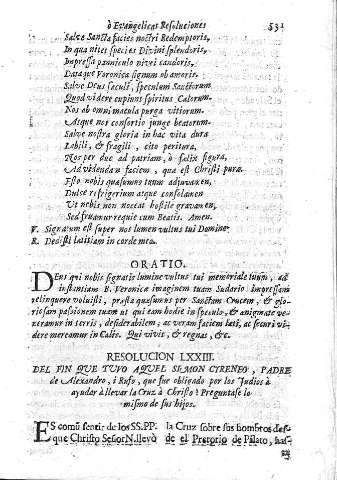 ò Evangelicas Resoluciones 531
Salve Sancta facies nostri Redemptoris,
In qua nites species Divini splendoris,
Impressa panniculo nivei candoris,
Dataque Veronica signum ob amoris.
Salve Deus sæculi, speculum Sanctorum
Quod videre cupiunt spiritus Cælorum.
Nos ab omni macula purga vitiorum.
Atque nos consortio junge beatorum.
Salve nostra gloria in hac vita dura
Labili, & fragili, cito peritura,
Nos per duc ad patriam, ò fælix figura,
Ad videndam faciem, quæ est Christi pura.
Esto nobis quæsumus tuum adjuvamen,
Dulce refrigerium atque consolamen
Ut nobis non noceat hostile gravamen,
Sed fruamur requie cum Beatis. Amen.
V. Signatum est super nos lumen vultus tui Domine.
R. Dedisti lætitiam in corde meo.
ORATIO.
DEus qui nobis signatis lumine vultus tui memoriale tuum, ad
instantiam B. Veronicæ imaginem tuam Sudario impressam
relinquere voluisti, præsta quæsumus per Sanctam Crucem, & glo-
riosam passionem tuam ut qui eam hodie in speculo, & ænigmate ve-
neramur in terris, desiderabilem, ac veram faciem læti, ac securi vi-
dere mereamur in Cælis. Qui vivis, & regnas, &c.
RESOLUCION LXXIII.
DEL FIN QUE TUVO AQUEL SIMON CYRENEO, PADRE
de Alexandro, i Rufo, que fue obligado por los Judios à
ayudar à llevar la Cruz à Christo? Preguntase lo
mismo de sus hijos.
ES comũ sentir de los SS. PP. la Cruz sobre sus hombros des-
que Christo Señor N. llevò de el Pretorio de Pilato, has-